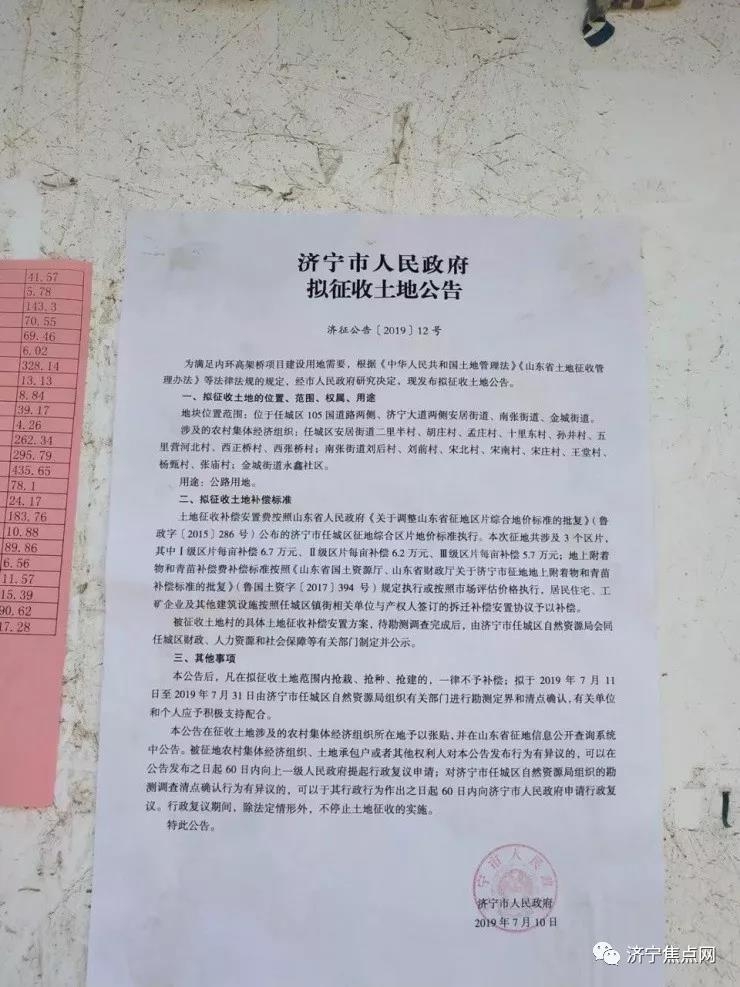 41.57
5.78
143.3
70.55
69.46
6.02
328.14
13.13
8.84
39.17
4.26
262.34
295.79
435.65
78.1
24.17
183.76
10.88
89.86
6.56
11.57
15.39
90.62
17.28
济宁市人民政府
拟征收土地公告
济征公告〔2019〕12号
为满足内环高架桥项目建设用地需要，根据《中华人民共和国土地管理法》《山东省土地征收管
理办法》等法律法规的规定，经市人民政府研究决定，现发布拟征收土地公告。
一、拟征收土地的位置、范围、权属、用途
地块位置范围：位于任城区105国道路两侧、济宁大道两侧安居街道、南张街道、金城街道。
涉及的农村集体经济组织：任城区安居街道二里半村、胡庄村、孟庄村、十里东村、孙井村、五
里营河北村、西正桥村、西张桥村；南张街道刘后村、刘前村、宋北村、宋南村、宋庄村、王堂村、
杨甄村、张庙村；金城街道永鑫社区。
用途：公路用地。
二、拟征收土地补偿标准
土地征收补偿安置费按照山东省人民政府《关于调整山东省征地区片综合地价标准的批复》（鲁
政字〔2015〕286号）公布的济宁市任城区征地综合区片地价标准执行。本次征地共涉及3个区片，
其中Ⅰ级区片每亩补偿6.7万元、Ⅱ级区片每亩补偿6.2万元、Ⅲ级区片每亩补偿5.7万元；地上附着
物和青苗补偿费补偿标准按照《山东省国土资源厅、山东省财政厅关于济宁市征地地上附着物和青苗
补偿标准的批复》（鲁国土资字〔2017〕394号）规定执行或按照市场评估价格执行，居民住宅、工
矿企业及其他建筑设施按照任城区镇街相关单位与产权人签订的拆迁补偿安置协议予以补偿。
被征收土地村的具体土地征收补偿安置方案，待勘测调查完成后，由济宁市任城区自然资源局会同
任城区财政、人力资源和社会保障等有关部门制定并公示。
三、其他事项
本公告后，凡在拟征收土地范围内抢栽、抢种、抢建的，一律不予补偿；拟于2019年7月11
日至2019年7月31日由济宁市任城区自然资源局组织有关部门进行勘测定界和清点确认，有关单位
和个人应予积极支持配合。
本公告在征收土地涉及的农村集体经济组织所在地予以张贴，并在山东省征地信息公开查询系统
中公告。被征地农村集体经济组织、土地承包户或者其他权利人对本公告发布行为有异议的，可以在
公告发布之日起60日内向上一级人民政府提起行政复议申请；对济宁市任城区自然资源局组织的勘
测调查清点确认行为有异议的，可以于其行政行为作出之日起60日内向济宁市人民政府申请行政复
议。行政复议期间，除法定情形外，不停止土地征收的实施。
特此公告。
济宁市人民政府
济宁市人民政府
2019年7月10日
济宁焦点网